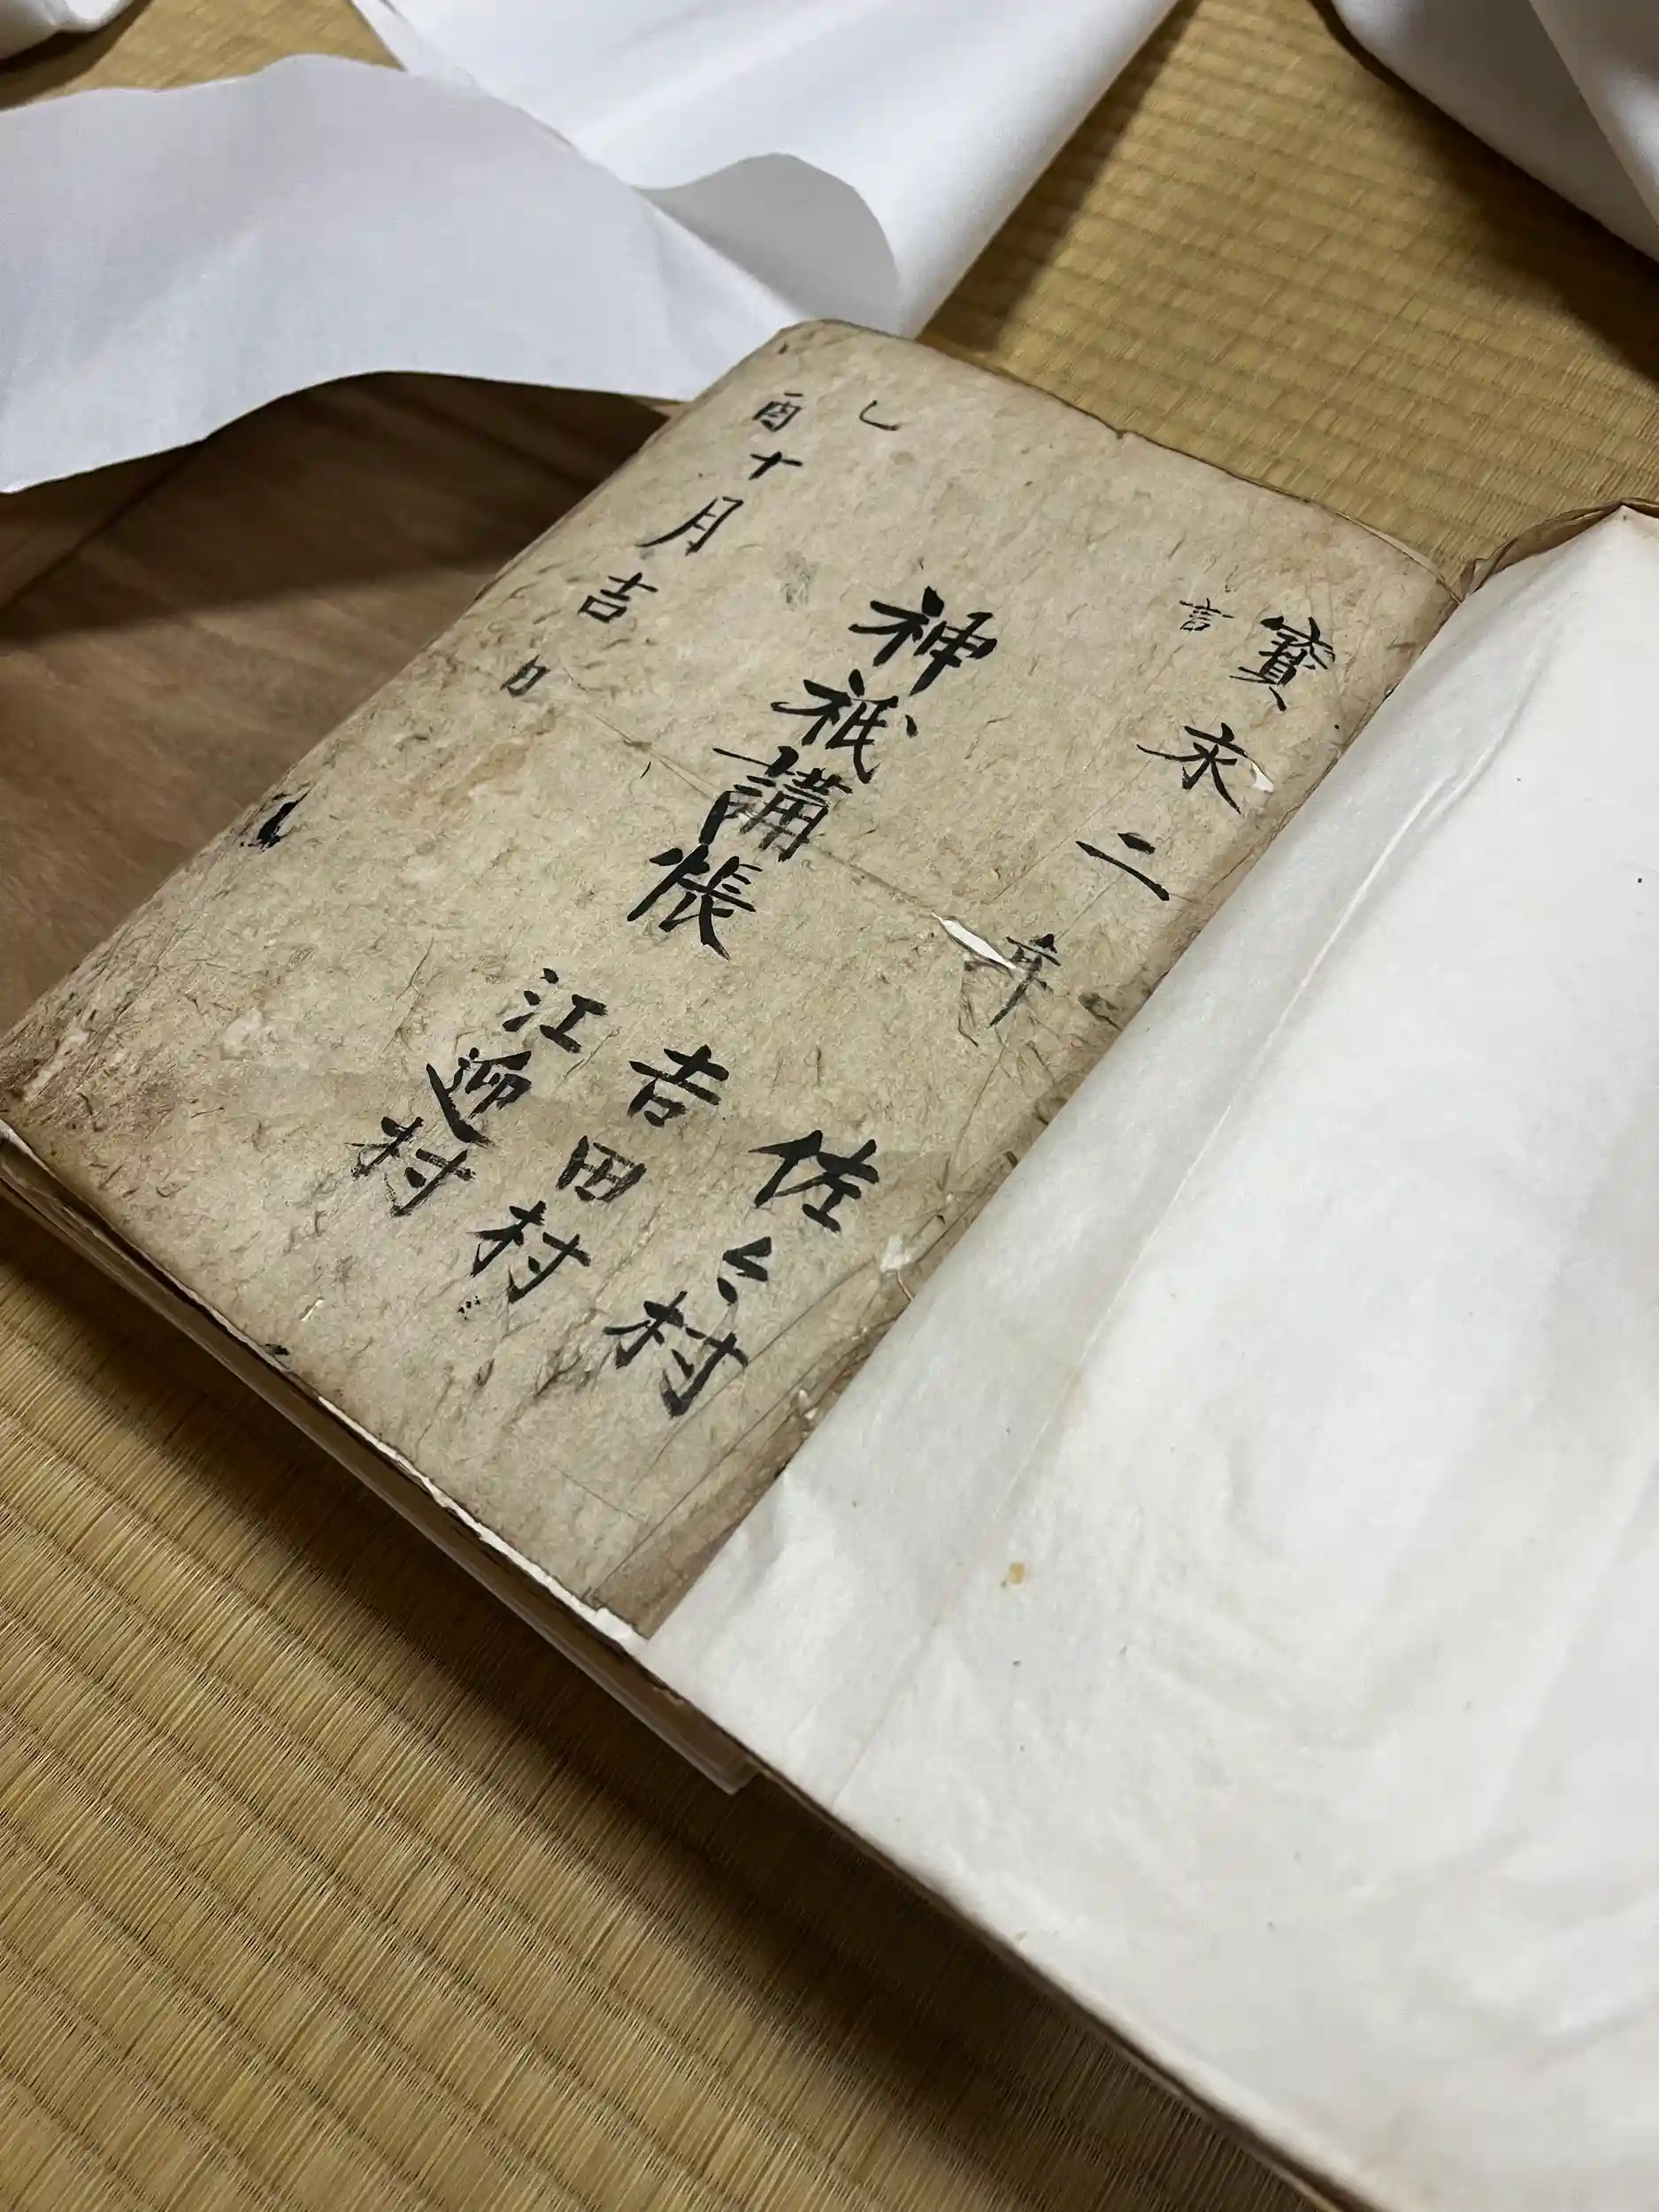 寳永二年
言
神祇講帳
乙
酉十月吉日
佐々村
吉田村
江迎村